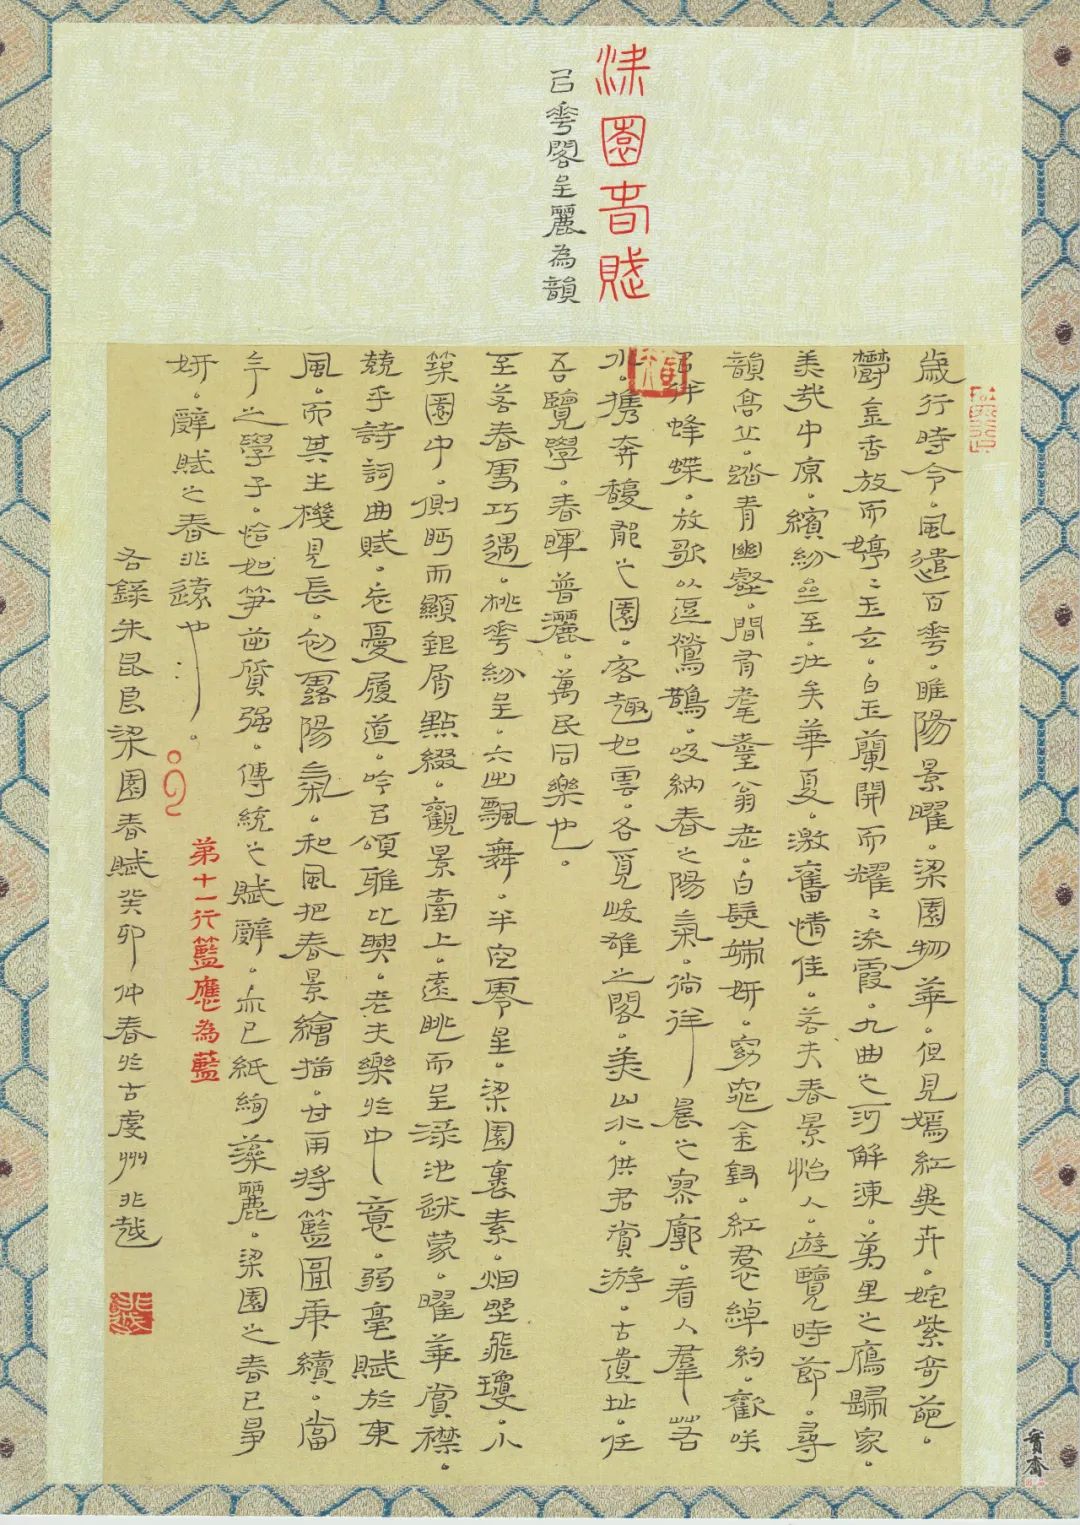 梁園春賦
以花閣呈麗為韻
歲行時令。風遣百花。睢陽景曜。梁園物華。但見嫣紅異卉。姹紫奇葩。
鬱金香放而婷婷玉立。白玉蘭開而耀耀流霞。九曲之河解凍。萬里之鴈歸家。
美哉中原。繽紛至。壯矣華夏。激奮情佳。若夫春景怡人。遊覽時節。尋
韻高丘。踏青幽壑。間有耄耋翁老。白髮端妍。窈窕金釵。紅裙綽約。歡咲
以伴蜂蝶。放歌以逗鶯鵲。吸納春之陽氣。徜徉晨之寥廓。看人羣若
水。攜奔馥之園。客趣如雲。各覓峻雄之閣。美山水。供君賞游。古遺址。任
吾覽學。春暉普灑。萬民同樂也。
至若春雪巧遇。桃花紛呈。六出飄舞。半空零星。梁園裹素。烟墅飛瓊。小
築園中。側眄而顯銀屑點綴。觀景臺上。遠眺而呈渌池迷蒙。曜華賞襟。
競乎詩詞曲賦。忘憂履道。吟以頌雅比興。老夫樂於中意。弱毫賦於東
風。而其生機見長。勿露陽氣。和風把春景繪描。甘雨將籃圖賡續。當
年之學子。恰如笋茁質强。傳統之賦辭。亦以紙絢藻麗。梁園之春已爭
妍。辭賦之春非遠也。
第十一行籃應為藍
右錄朱昆良梁園春賦癸卯仲春於古虔州非越